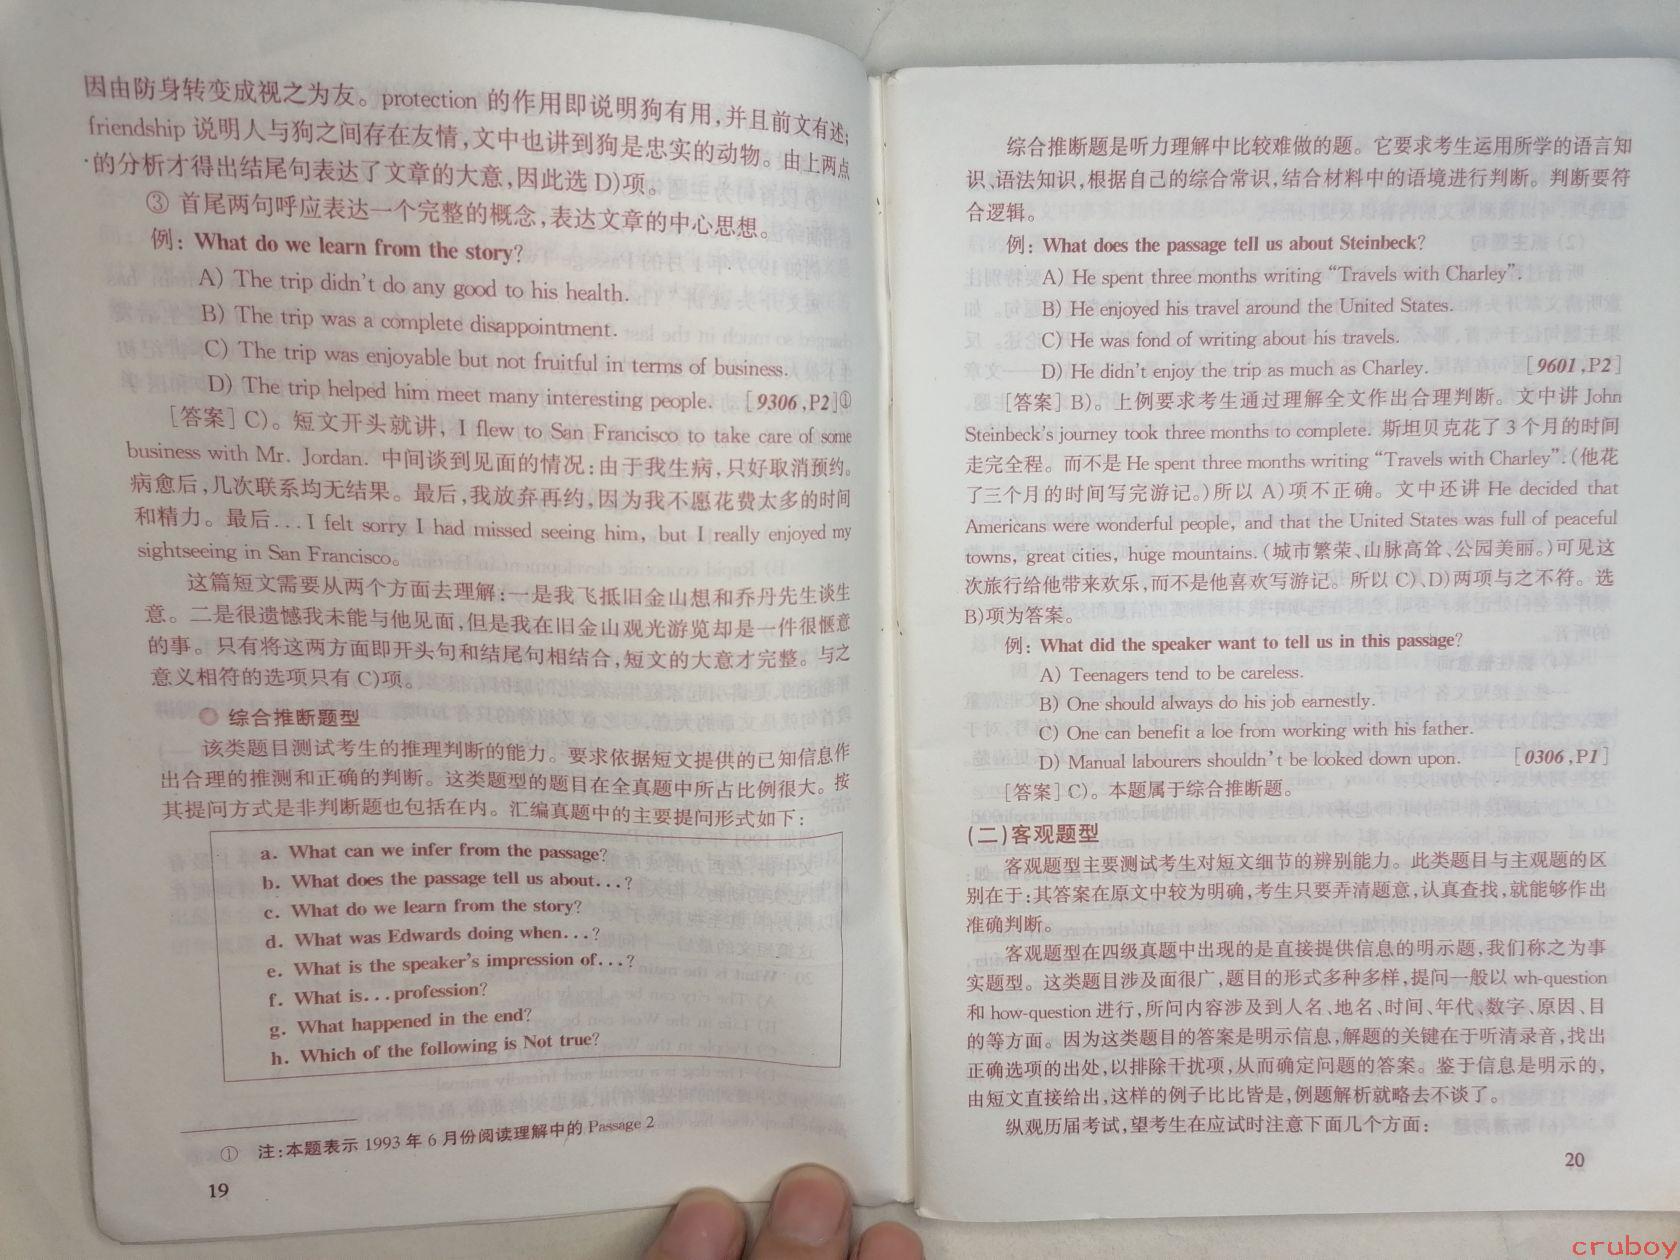 因由防身转变成视之为友。protection 的作用即说明狗有用,并且前文有述;
friendship 说明人与狗之间存在友情,文中也讲到狗是忠实的动物。由上两点
的分析才得出结尾句表达了文章的大意,因此选 D)项。
③ 首尾两句呼应表达一个完整的概念,表达文章的中心思想。
例: What do we learn from the story?
A) The trip didn't do any good to his health.
B) The trip was a complete disappointment.
C) The trip was enjoyable but not fruitful in terms of business.
D) The trip helped him meet many interesting people. [9306,P2]①
[答案] C)。短文开头就讲, I flew to San Francisco to take care of some
business with Mr. Jordan. 中间谈到见面的情况:由于我生病,只好取消预约。
病愈后,几次联系均无结果。最后,我放弃再约,因为我不愿花费太多的时间
和精力。最后...I felt sorry I had missed seeing him, but I really enjoyed my
sightseeing in San Francisco。
这篇短文需要从两个方面去理解:一是我飞抵旧金山想和乔丹先生谈生
意。二是很遗憾我未能与他见面,但是我在旧金山观光游览却是一件很惬意
的事。只有将这两方面即开头句和结尾句相结合,短文的大意才完整。与之
意义相符的选项只有 C)项。
综合推断题型
该类题目测试考生的推理判断的能力。要求依据短文提供的已知信息作
出合理的推测和正确的判断。这类题型的题目在全真题中所占比例很大。按
其提问方式是非判断题也包括在内。汇编真题中的主要提问形式如下:
a. What can we infer from the passage?
b. What does the passage tell us about...?
c. What do we learn from the story?
d. What was Edwards doing when...?
e. What is the speaker's impression of...?
f. What is...profession?
g. What happened in the end?
h. Which of the following is Not true?
① 注:本题表示 1993 年 6 月份阅读理解中的 Passage 2
19
综合推断题是听力理解中比较难做的题。它要求考生运用所学的语言知
识、语法知识,根据自己的综合常识,结合材料中的语境进行判断。判断要符
合逻辑。
例: What does the passage tell us about Steinbeck?
A) He spent three months writing “Travels with Charley”.
B) He enjoyed his travel around the United States.
C) He was fond of writing about his travels.
D) He didn't enjoy the trip as much as Charley. [9601,P2]
[答案] B)。上例要求考生通过理解全文作出合理判断。文中讲 John
Steinbeck's journey took three months to complete. 斯坦贝克花了 3 个月的时间
走完全程。而不是 He spent three months writing “Travels with Charley”.(他花
了三个月的时间写完游记。)所以 A)项不正确。文中还讲 He decided that
Americans were wonderful people, and that the United States was full of peaceful
towns, great cities, huge mountains. (城市繁荣、山脉高耸、公园美丽。)可见这
次旅行给他带来欢乐,而不是他喜欢写游记。所以 C)、D)两项与之不符。选
B)项为答案。
例: What did the speaker want to tell us in this passage?
A) Teenagers tend to be careless.
B) One should always do his job earnestly.
C) One can benefit a loe from working with his father.
D) Manual labourers shouldn't be looked down upon. [0306,P1]
[答案] C)。本题属于综合推断题。
(二)客观题型
客观题型主要测试考生对短文细节的辨别能力。此类题目与主观题的区
别在于:其答案在原文中较为明确,考生只要弄清题意,认真查找,就能够作出
准确判断。
客观题型在四级真题中出现的是直接提供信息的明示题,我们称之为事
实题型。这类题目涉及面很广,题目的形式多种多样,提问一般以 wh-question
和 how-question 进行,所问内容涉及到人名、地名、时间、年代、数字、原因、目
的等方面。因为这类题目的答案是明示信息,解题的关键在于听清录音,找出
正确选项的出处,以排除干扰项,从而确定问题的答案。鉴于信息是明示的,
由短文直接给出,这样的例子比比皆是,例题解析就略去不谈了。
纵观历届考试,望考生在应试时注意下面几个方面:
20
cruboy